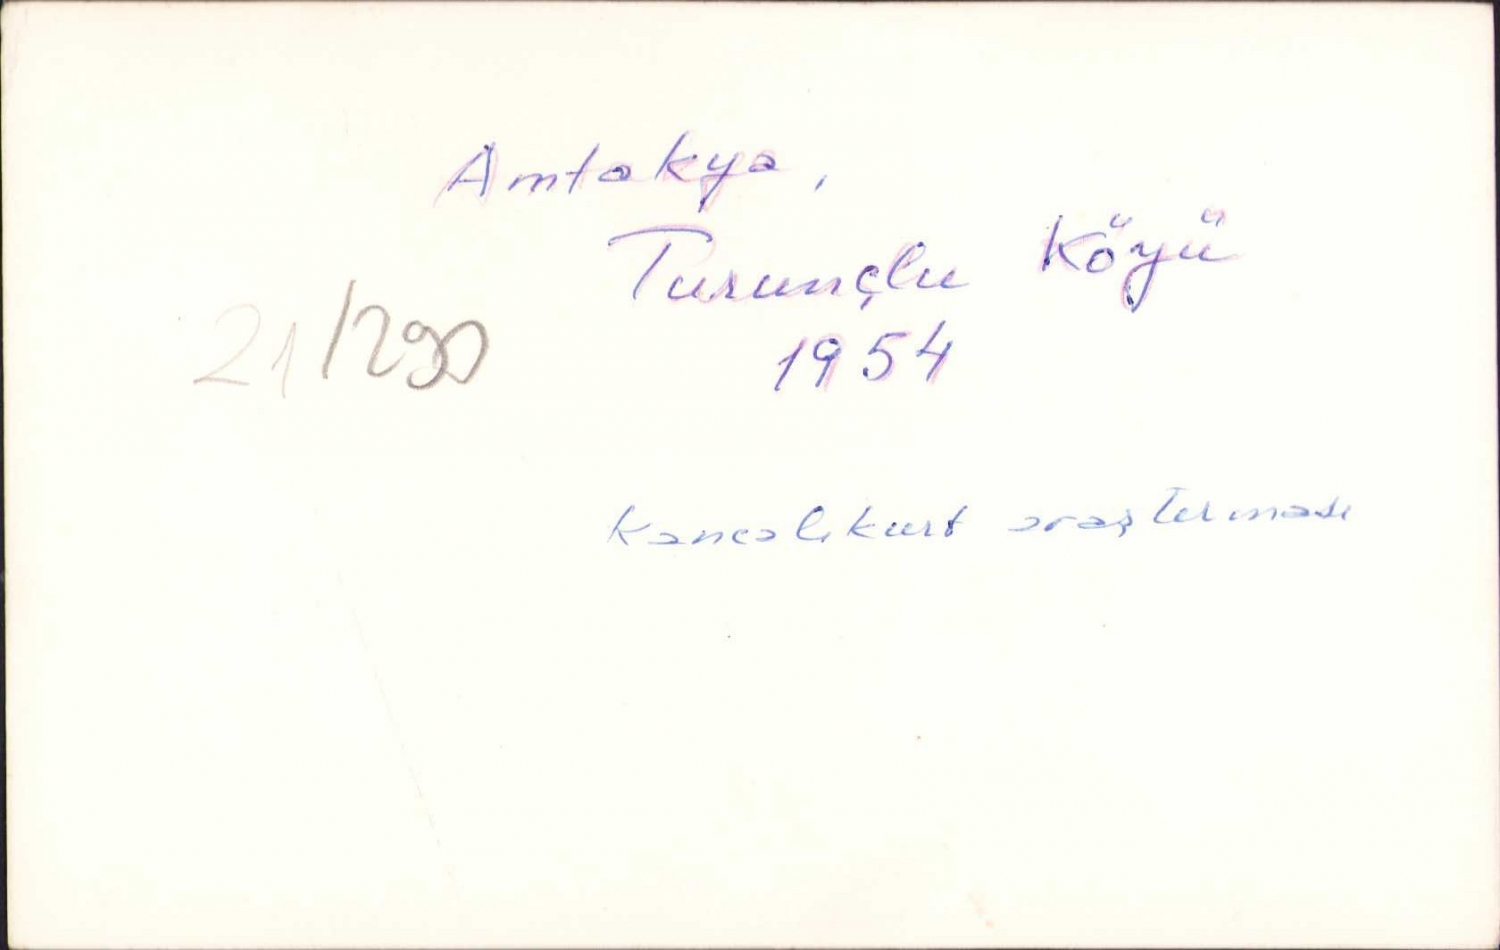 Amtakya,
Turunçlu Köyü
21/290
1954
Kancalıkurt araştırması